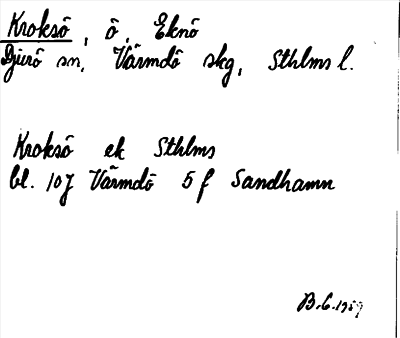 Kroksö, ö, Eknö
Djurö sn, Värmdö skg, Sthlms l.
Kroksö ek Sthlms
bl. 107 Värmdö 5 f Sandhamn
B.C.1959